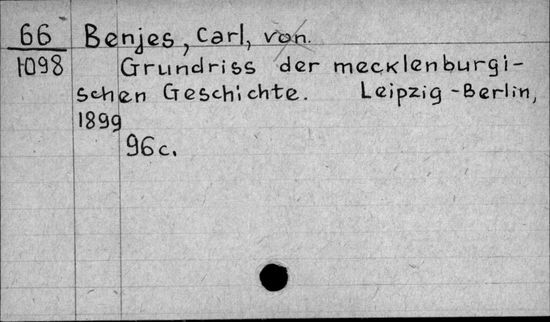 66 Benjes, Carl, von.
1098 Grundriss der mecklenburgi-
schen Geschichte. Leipzig-Berlin,
1899
96c.